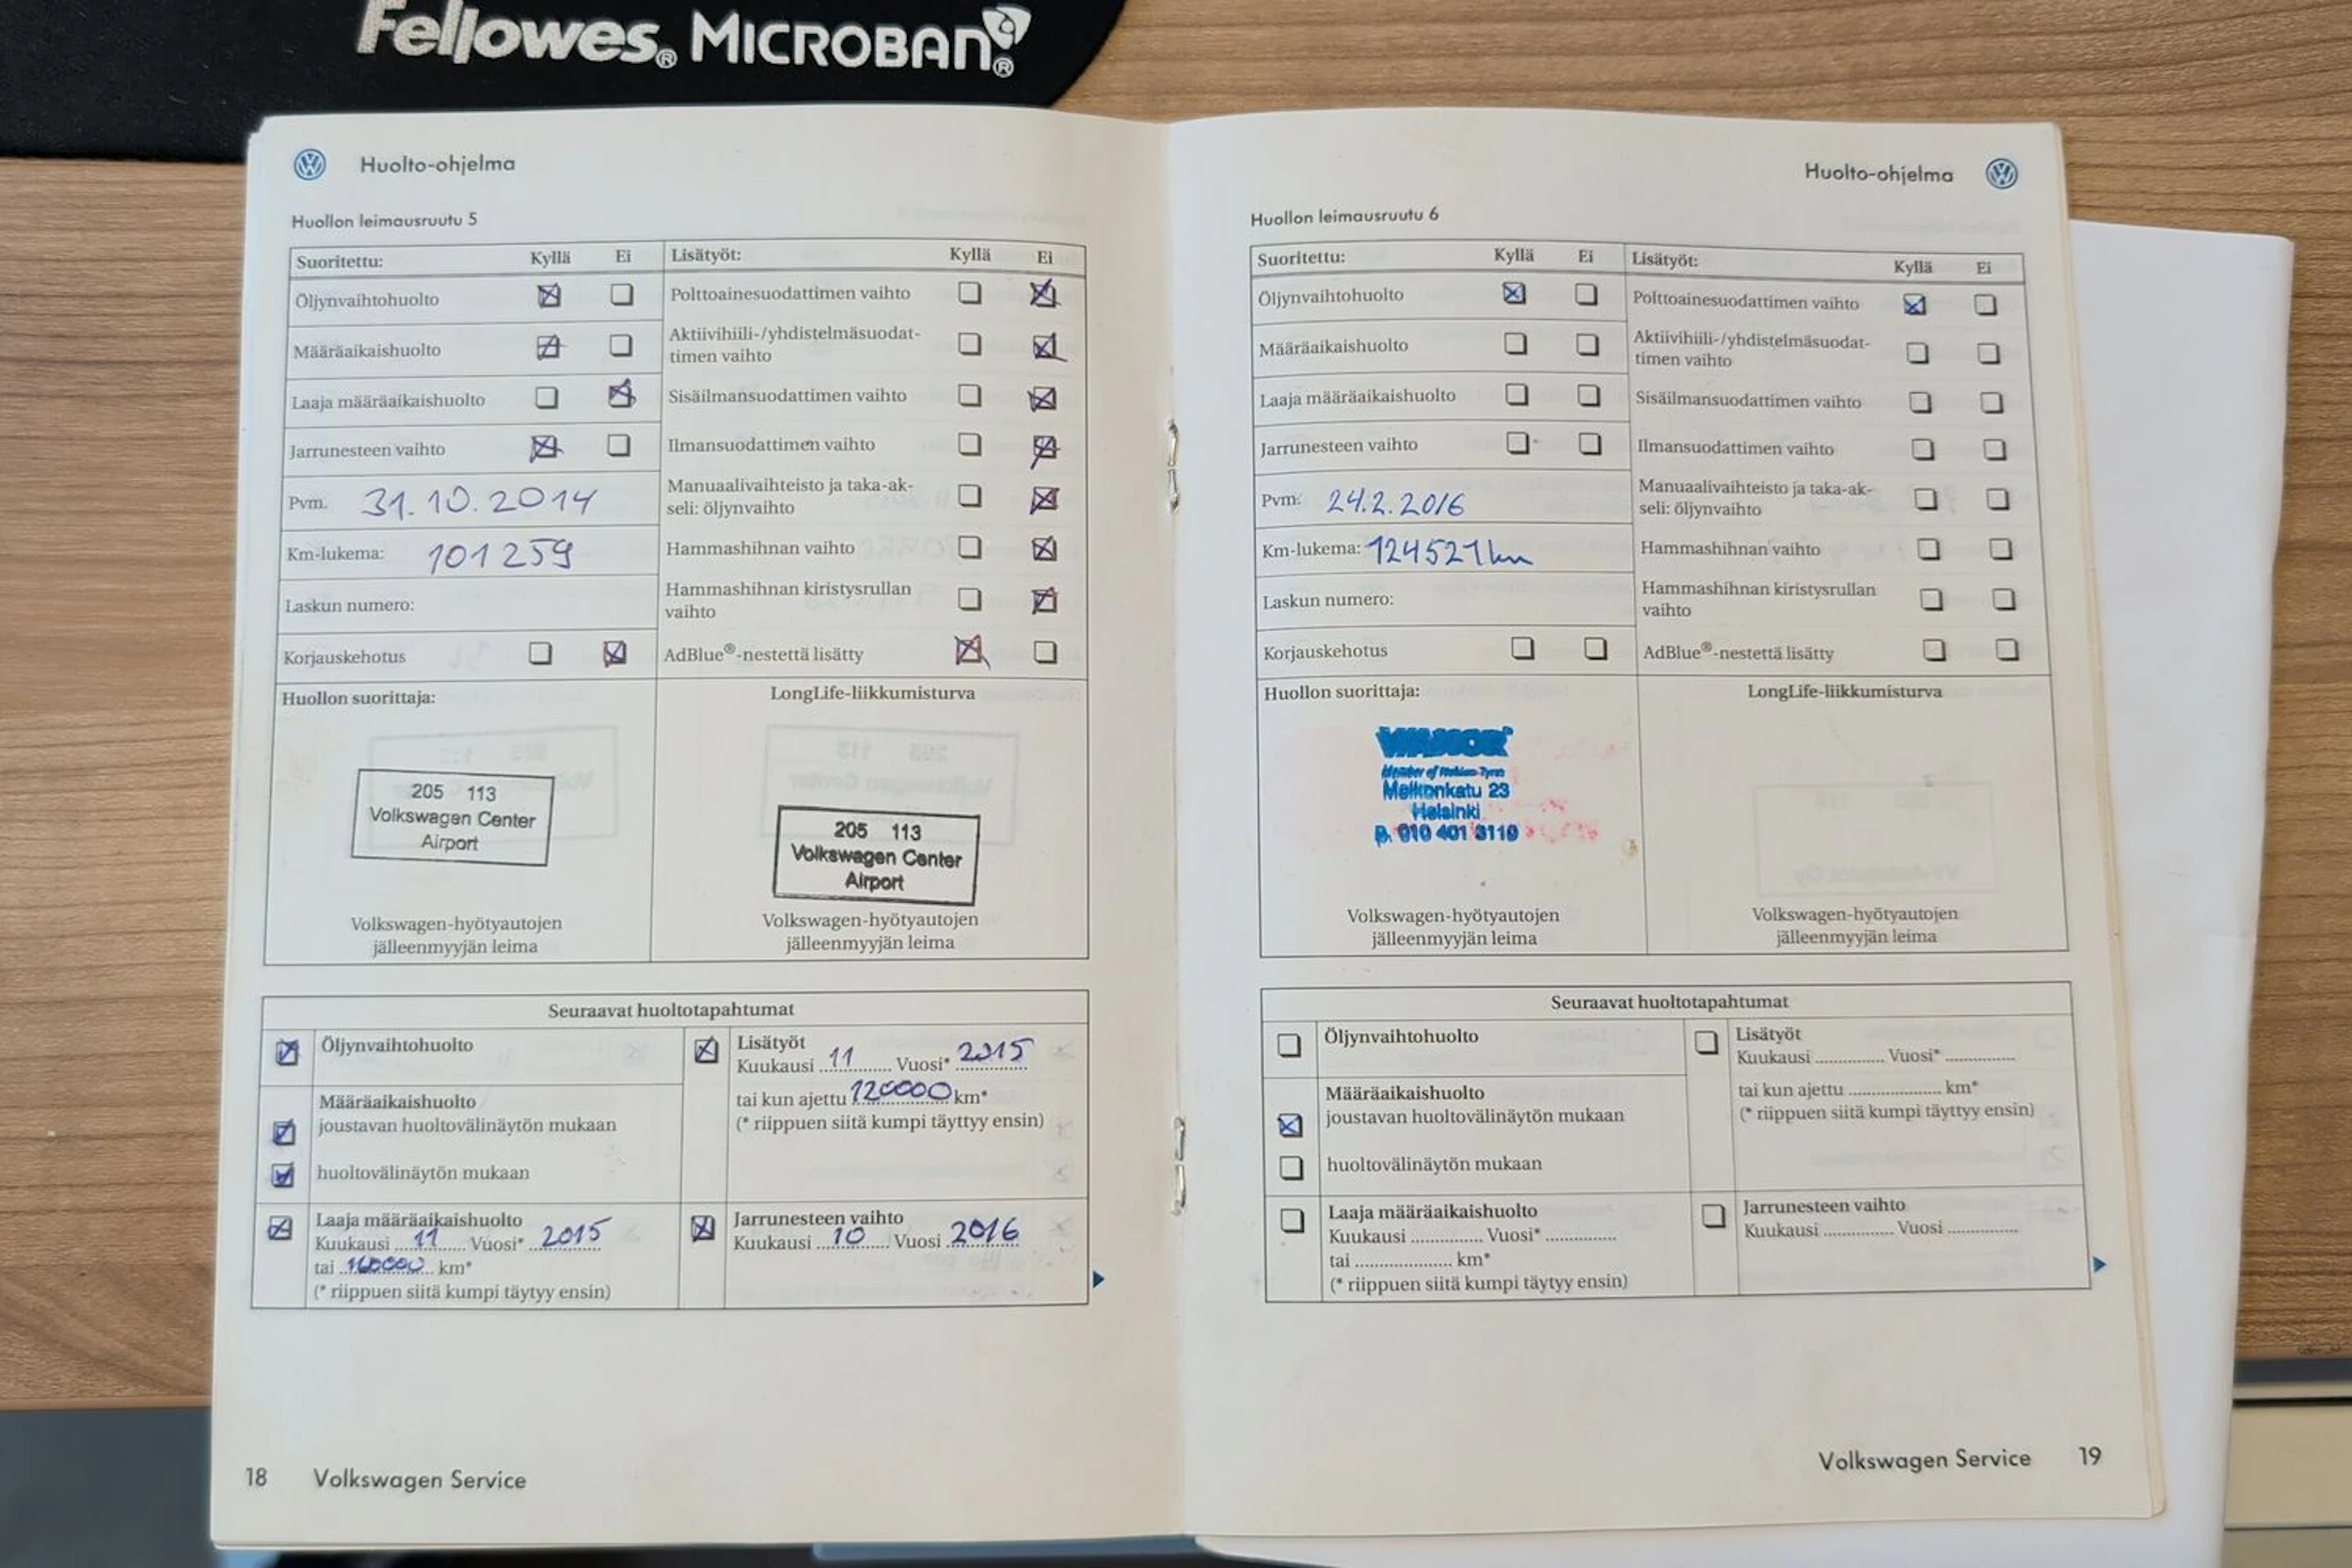 Fellowes® MICROBAN®
Huolto-ohjelma
Huollon leimausruutu 5
Suoritettu: Kyllä Ei Lisätyöt: Kyllä Ei
Öljynvaihtohuolto Polttoainesuodattimen vaihto
Määräaikaishuolto Aktiivihiili-/yhdistelmäsuodat-
timen vaihto
Laaja määräaikaishuolto Sisäilmansuodattimen vaihto
Jarrunesteen vaihto Ilmansuodattimen vaihto
Pvm. 31.10.2014 Manuaalivaihteisto ja taka-ak-
seli: öljynvaihto
Km-lukema: 101 259 Hammashihnan vaihto
Laskun numero: Hammashihnan kiristysrullan
vaihto
Korjauskehotus AdBlue®-nestettä lisätty
Huollon suorittaja: LongLife-liikkumisturva
205 113
Volkswagen Center
Airport
205 113
Volkswagen Center
Airport
Volkswagen-hyötyautojen
jälleenmyyjän leima
Volkswagen-hyötyautojen
jälleenmyyjän leima
Seuraavat huoltotapahtumat
Öljynvaihtohuolto
Määräaikaishuolto
joustavan huoltovälinäytön mukaan
huoltovälinäytön mukaan
Lisätyöt
Kuukausi 11 Vuosi* 2015
tai kun ajettu 120000 km*
(* riippuen siitä kumpi täyttyy ensin)
Laaja määräaikaishuolto
Kuukausi 11 Vuosi* 2015
tai km*
(* riippuen siitä kumpi täytyy ensin)
Jarrunesteen vaihto
Kuukausi 10 Vuosi 2016
18 Volkswagen Service
Huolto-ohjelma
Huollon leimausruutu 6
Suoritettu: Kyllä Ei Lisätyöt: Kyllä Ei
Öljynvaihtohuolto Polttoainesuodattimen vaihto
Määräaikaishuolto Aktiivihiili-/yhdistelmäsuodat-
timen vaihto
Laaja määräaikaishuolto Sisäilmansuodattimen vaihto
Jarrunesteen vaihto Ilmansuodattimen vaihto
Pvm. 24.2.2016 Manuaalivaihteisto ja taka-ak-
seli: öljynvaihto
Km-lukema: 124521 km Hammashihnan vaihto
Laskun numero: Hammashihnan kiristysrullan
vaihto
Korjauskehotus AdBlue®-nestettä lisätty
Huollon suorittaja: LongLife-liikkumisturva
VIANOR
Member of Nokian Tyres
Melkonkatu 23
Helsinki
p. 010 401 3110
Volkswagen-hyötyautojen
jälleenmyyjän leima
Volkswagen-hyötyautojen
jälleenmyyjän leima
Seuraavat huoltotapahtumat
Öljynvaihtohuolto
Määräaikaishuolto
joustavan huoltovälinäytön mukaan
huoltovälinäytön mukaan
Lisätyöt
Kuukausi Vuosi*
tai kun ajettu km*
(* riippuen siitä kumpi täyttyy ensin)
Laaja määräaikaishuolto
Kuukausi Vuosi*
tai km*
(* riippuen siitä kumpi täytyy ensin)
Jarrunesteen vaihto
Kuukausi Vuosi
Volkswagen Service 19